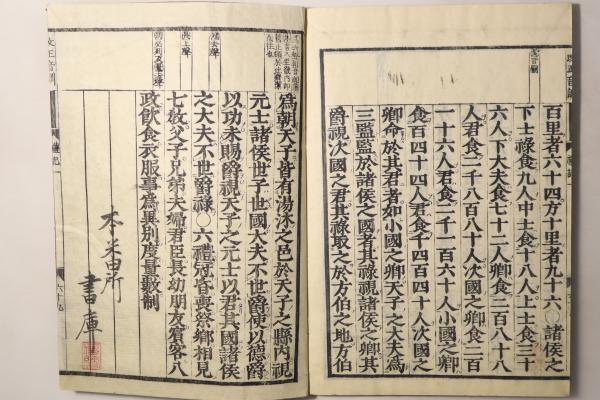 百里者六十四方十里者九十六○諸侯之
下士祿食九人中士食十八人上士食三十
六人下大夫食七十二人卿食二百八十八
人君食二千八百八十人次國之卿食二百
一十六人君食二千一百六十人小國之卿
食百四十四人君食千四百四十人次國之
卿命於其君者如小國之卿天子之大夫爲
三監監於諸侯之國者其祿視諸侯之卿其
爵視次國之君其祿取之於方伯之地方伯
爲朝天子皆有湯沐之邑於天子之縣內視
元士諸侯世子世國大夫不世爵使以德爵
以功未賜爵視天子之元士以君其國諸侯
之大夫不世爵祿○六禮冠昏喪祭鄉相見
七敎父子兄弟夫婦君臣長幼朋友賓客八
政飮食衣服事爲異別度量數制
書庫
改正音訓
禮記一
六十九